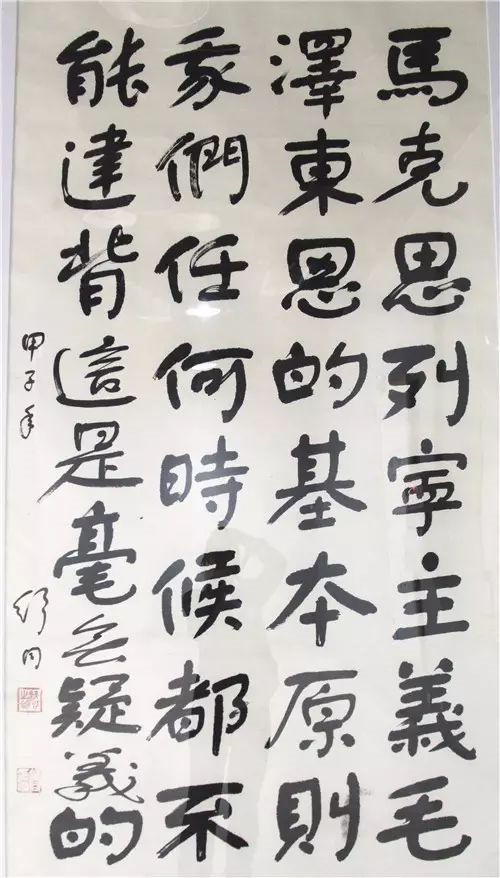 馬克思列寧主義毛
澤東恩的基本原則
我們任何時候都不
能違背這是毫无疑義的
甲子年 舒同